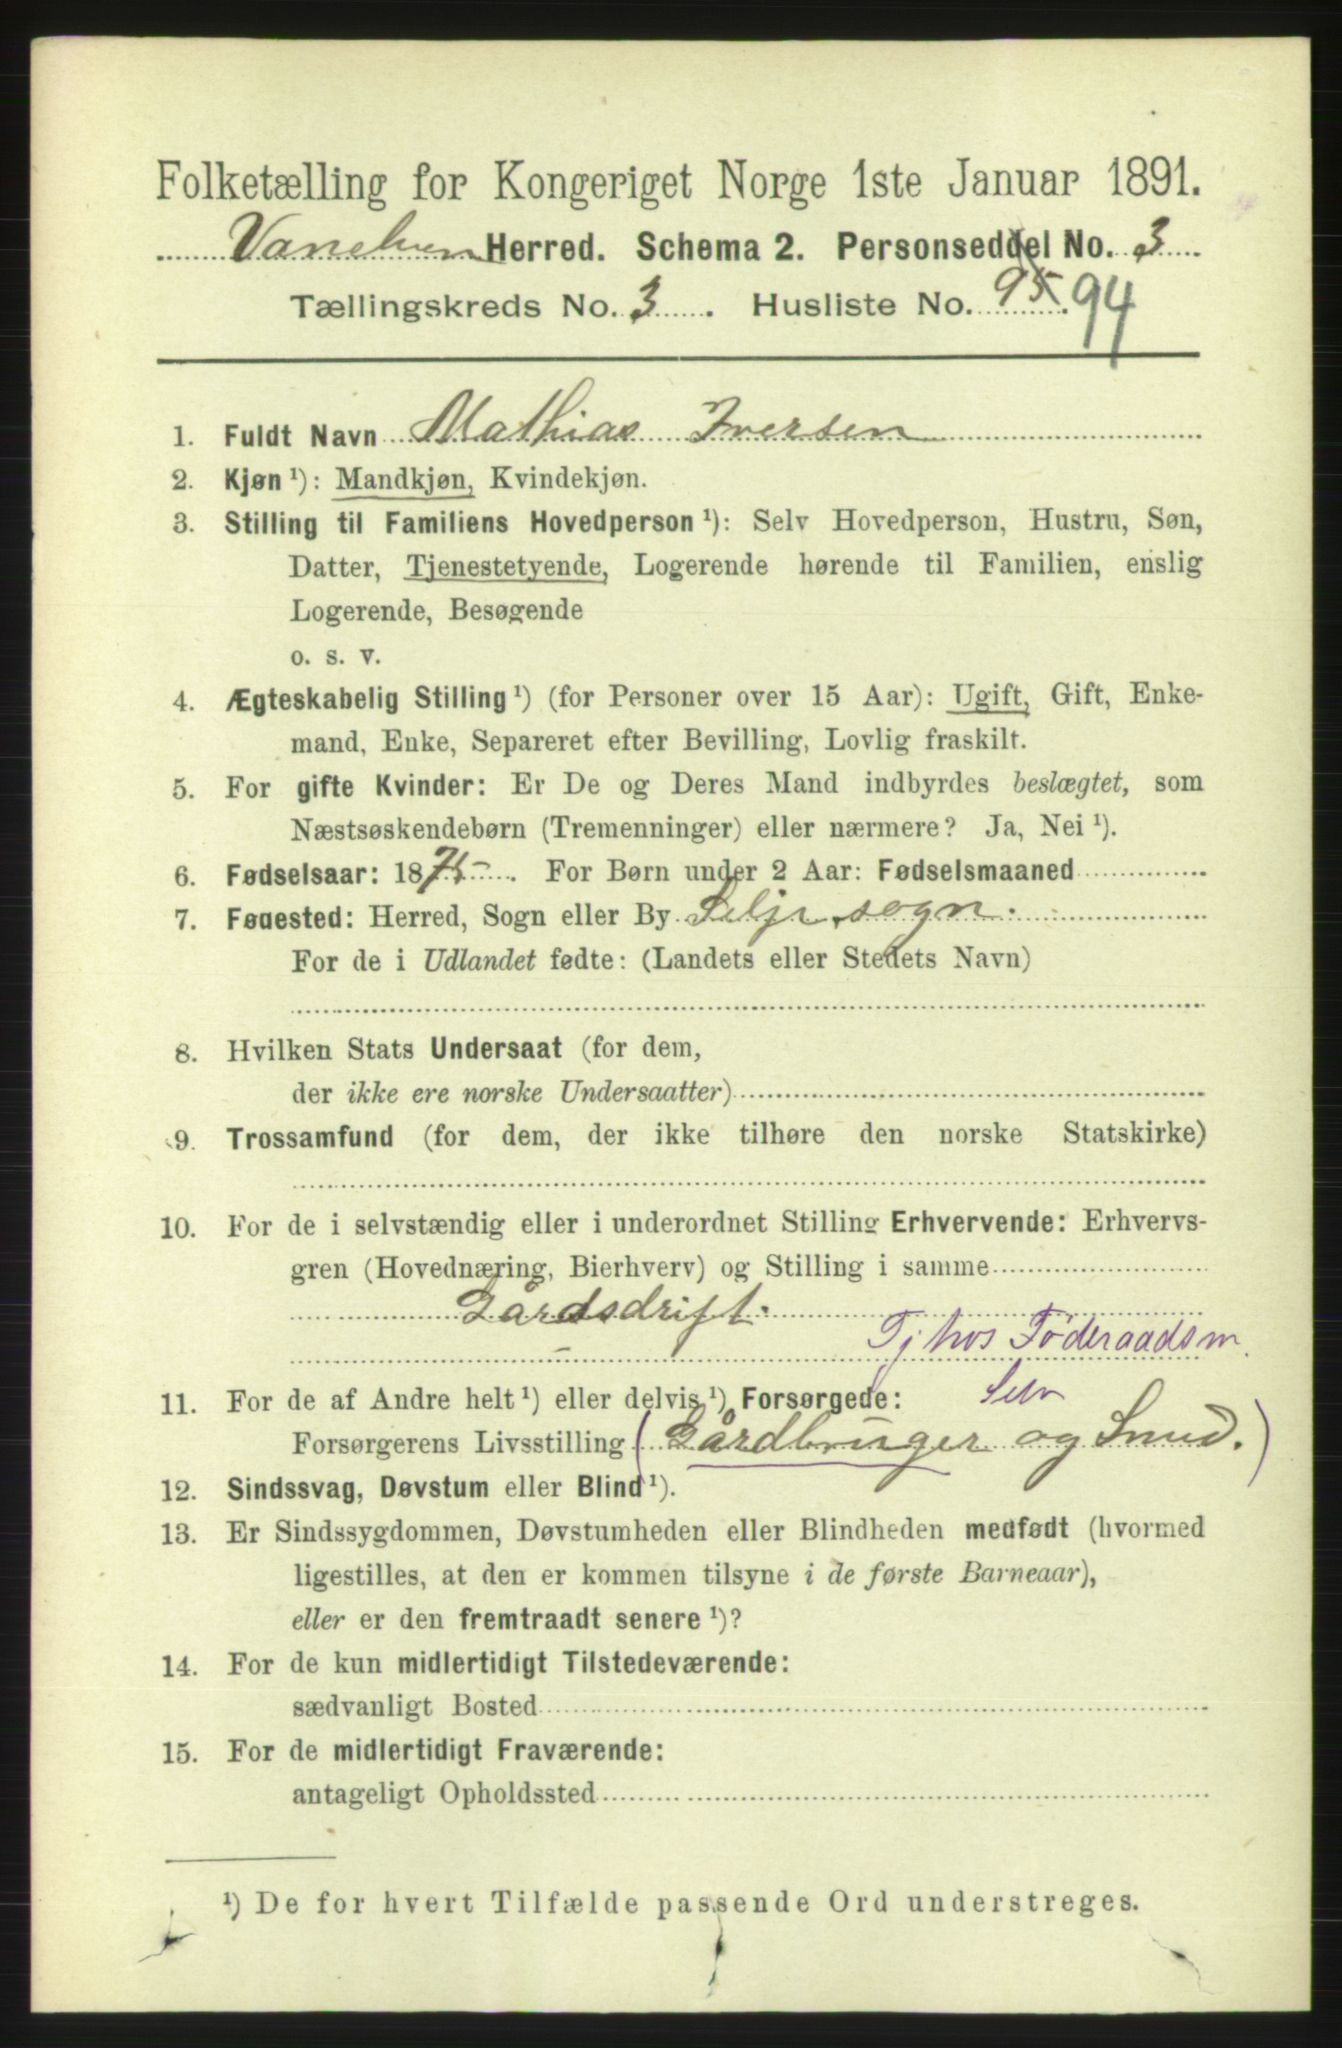 Folketælling for Kongeriget Norge 1ste Januar 1891.
Vanelven Herred. Schema 2. Personseddel No. 3
Tællingskreds No. 3. Husliste No. 95. 94
1. Fuldt Navn Mathias Iversen
2. Kjøn ¹): Mandkjøn, Kvindekjøn.
3. Stilling til Familiens Hovedperson ¹): Selv Hovedperson, Hustru, Søn,
Datter, Tjenestetyende, Logerende hørende til Familien, enslig
Logerende, Besøgende
o. s. v.
4. Ægteskabelig Stilling ¹) (for Personer over 15 Aar): Ugift, Gift, Enke-
mand, Enke, Separeret efter Bevilling, Lovlig fraskilt.
5. For gifte Kvinder: Er De og Deres Mand indbyrdes beslægtet, som
Næstsøskendebørn (Tremenninger) eller nærmere? Ja, Nei ¹).
6. Fødselsaar: 1875. For Børn under 2 Aar: Fødselsmaaned
7. Fødested: Herred, Sogn eller By Selje sogn.
For de i Udlandet fødte: (Landets eller Stedets Navn)
8. Hvilken Stats Undersaat (for dem,
der ikke ere norske Undersaatter)
9. Trossamfund (for dem, der ikke tilhøre den norske Statskirke)
10. For de i selvstændig eller i underordnet Stilling Erhvervende: Erhvervs-
gren (Hovednæring, Bierhverv) og Stilling i samme
Gårdsdrift.
Tj hos Føderaadsm.
11. For de af Andre helt ¹) eller delvis ¹) Forsørgede: Selv
Forsørgerens Livsstilling (Gårdbruger og Smed.)
12. Sindssvag, Døvstum eller Blind ¹).
13. Er Sindssygdommen, Døvstumheden eller Blindheden medfødt (hvormed
ligestilles, at den er kommen tilsyne i de første Barneaar),
eller er den fremtraadt senere ¹)?
14. For de kun midlertidigt Tilstedeværende:
sædvanligt Bosted
15. For de midlertidigt Fraværende:
antageligt Opholdssted
¹) De for hvert Tilfælde passende Ord understreges.